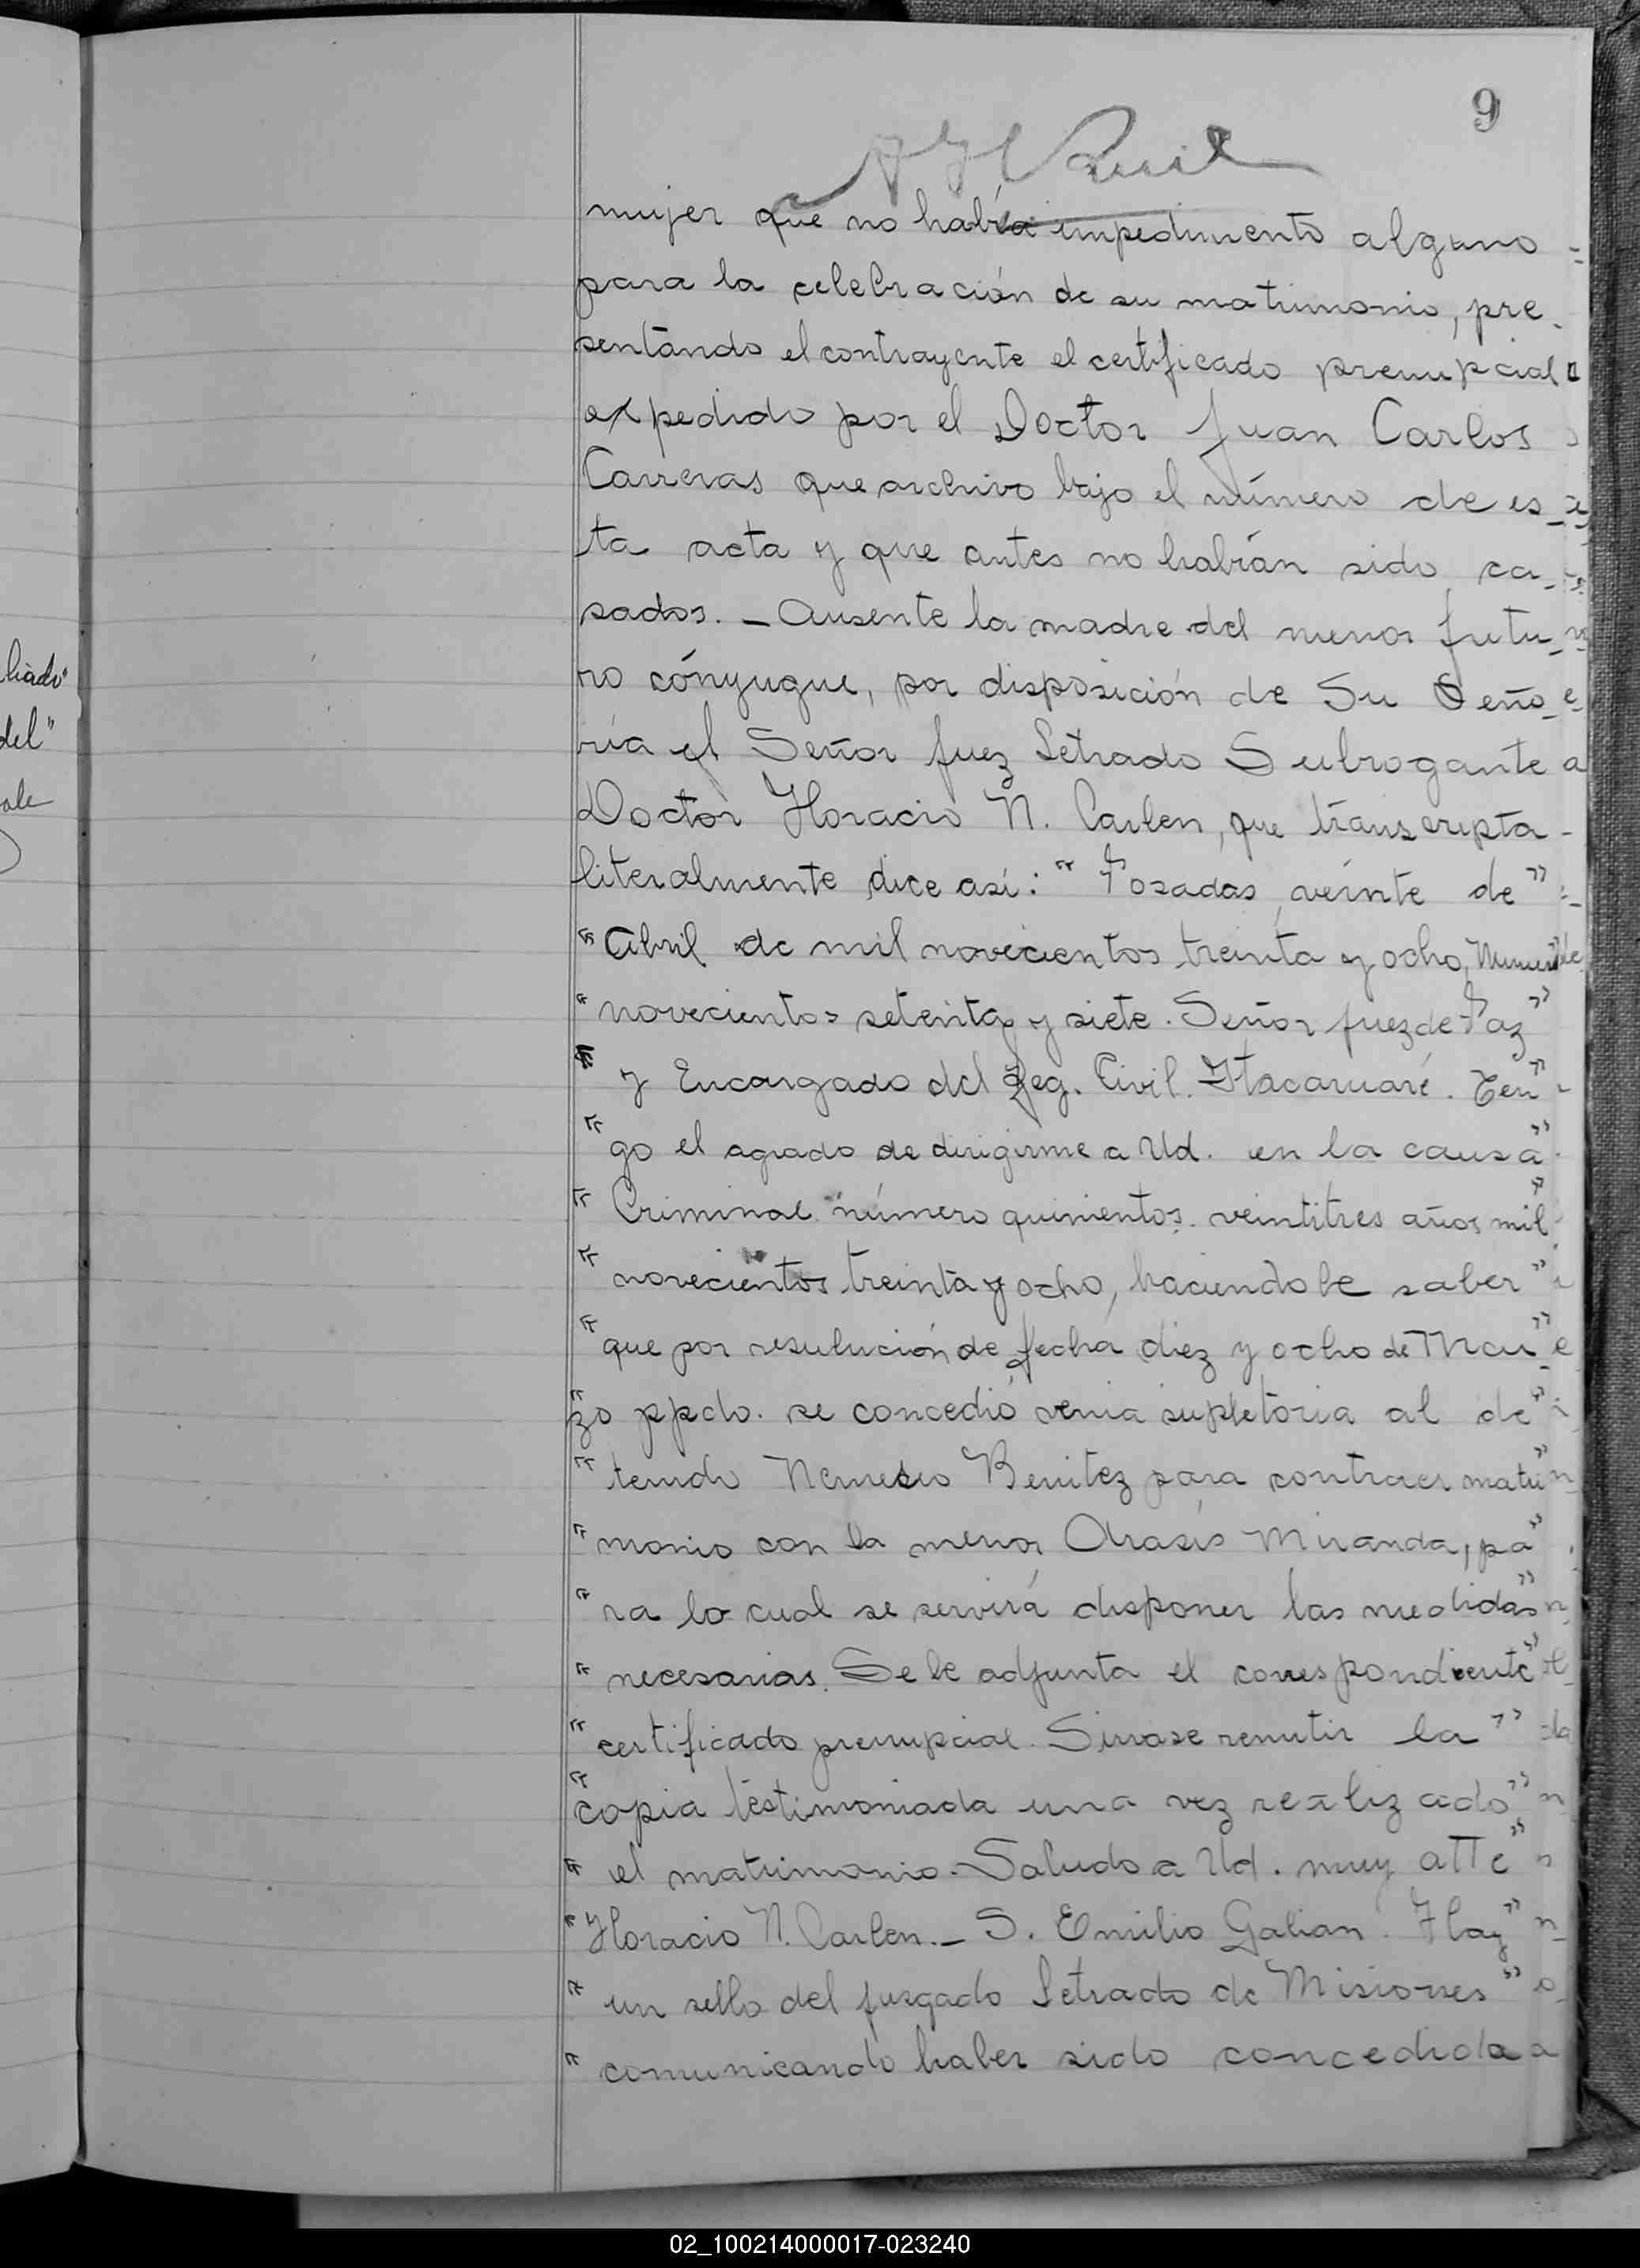 9
mujer que no había impedimento alguno
para la celebración de su matrimonio, pre
sentando el contrayente el certificado prenupcial
expedido por el Doctor Juan Carlos
Carreras que archivo bajo el número de es
ta acta y que antes no habían sido ca
sados. _ Ausente la madre del menor futu
ro cónyugue, por disposición de Su Seño
ría el Señor Juez Letrado Subrogante
Doctor Horacio N. Carlen, que transcripta
literalmente dice así: " Posadas, veinte de "
" Abril de mil novecientos treinta y ocho, Numero
" novecientos setenta y siete. Señor Juez de Paz "
" y Encargado del Reg. Civil. Itacaruaré. Ten "
" go el agrado de dirigirme a Ud. en la causa "
" Criminal número quinientos veintitres años mil "
" novecientos treinta y ocho, haciendole saber "
" que por resulución de fecha diez y ocho de Mar "
" zo ppdo. se concedió venia supletoria al de "
" tenido Nemesio Benitez para contraer matri "
" monio con la menor Orasis Miranda, pa "
" ra lo cual se servirá disponer las medidas "
" necesarias. Se le adjunta el correspondiente "
" certificado prenupcial. Sirvase remitir la "
" copia testimoniada una vez realizado "
" el matrimonio. Saludo a Ud. muy atte "
" Horacio N. Carlen._ S. Emilio Galian. Hay "
" un sello del Juzgado Letrado de Misiones "
" comunicando haber sido concedida
liado"
del"
ale
02_100214000017-023240